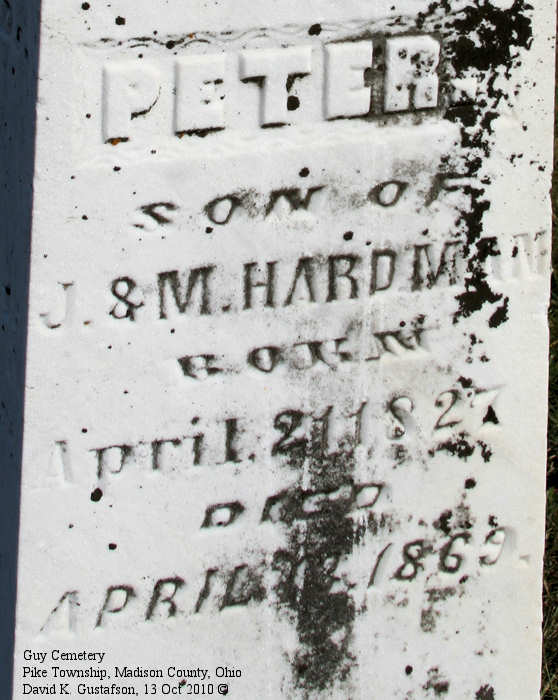 PETER
SON OF
J. & M. HARDMAN
BORN
April. 21, 1827
DIED
APRIL 1869.
Guy Cemetery
Pike Township, Madison County, Ohio
David K. Gustafson, 13 Oct 2010 ©